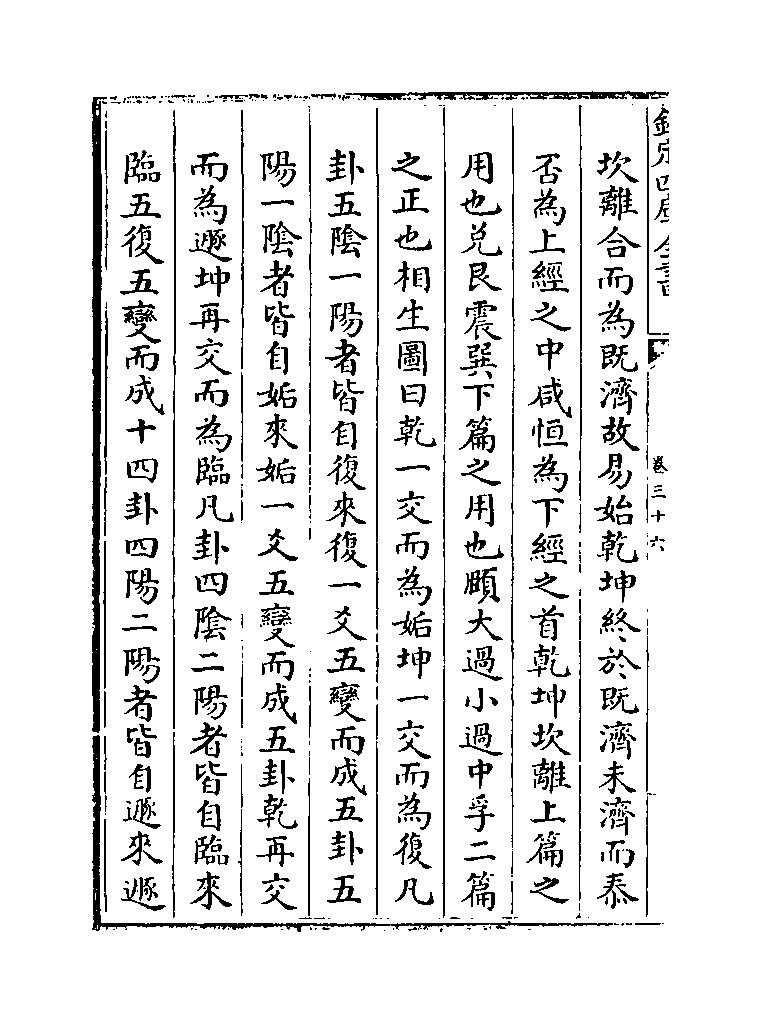 欽定四庫全書
卷三十六
坎離合而為既濟故易始乾坤終於既濟未濟而泰
否為上經之中咸恒為下經之首乾坤坎離上篇之
用也兌艮震巽下篇之用也頤大過小過中孚二篇
之正也相生圖曰乾一交而為姤坤一交而為復凡
卦五陰一陽者皆自復來復一爻五變而成五卦五
陽一陰者皆自姤來姤一爻五變而成五卦乾再交
而為遯坤再交而為臨凡卦四陰二陽者皆自臨來
臨五復五變而成十四卦四陽二陽者皆自遯來遯